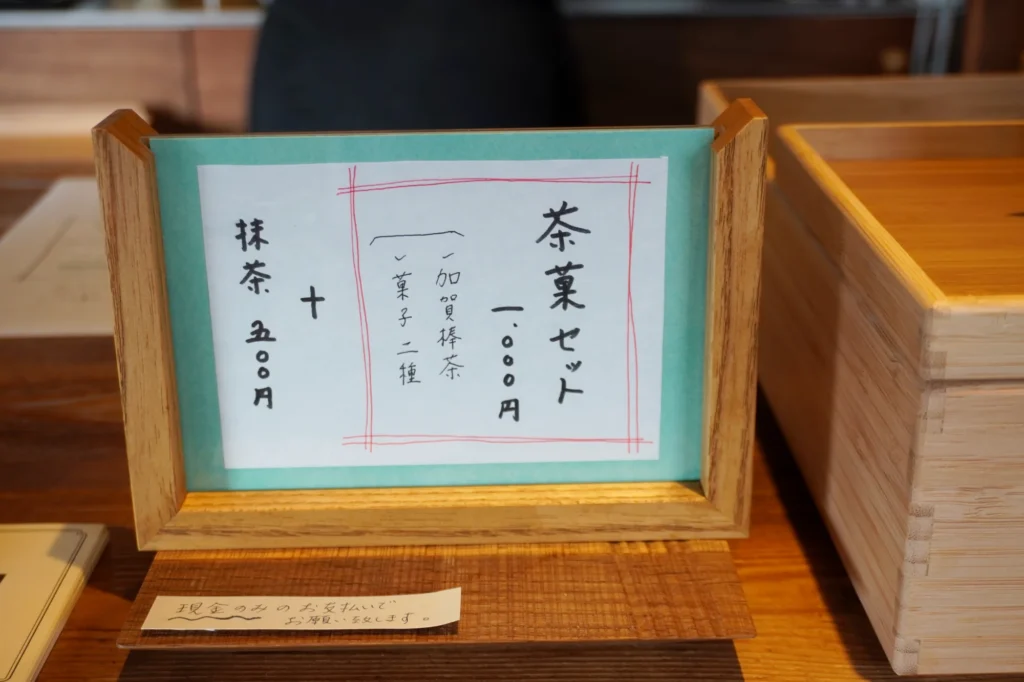 茶菓セット
一、〇〇〇円
一加賀棒茶
一菓子二種
＋
抹茶 五〇〇円
現金のみのお支払いで
お願い致します。